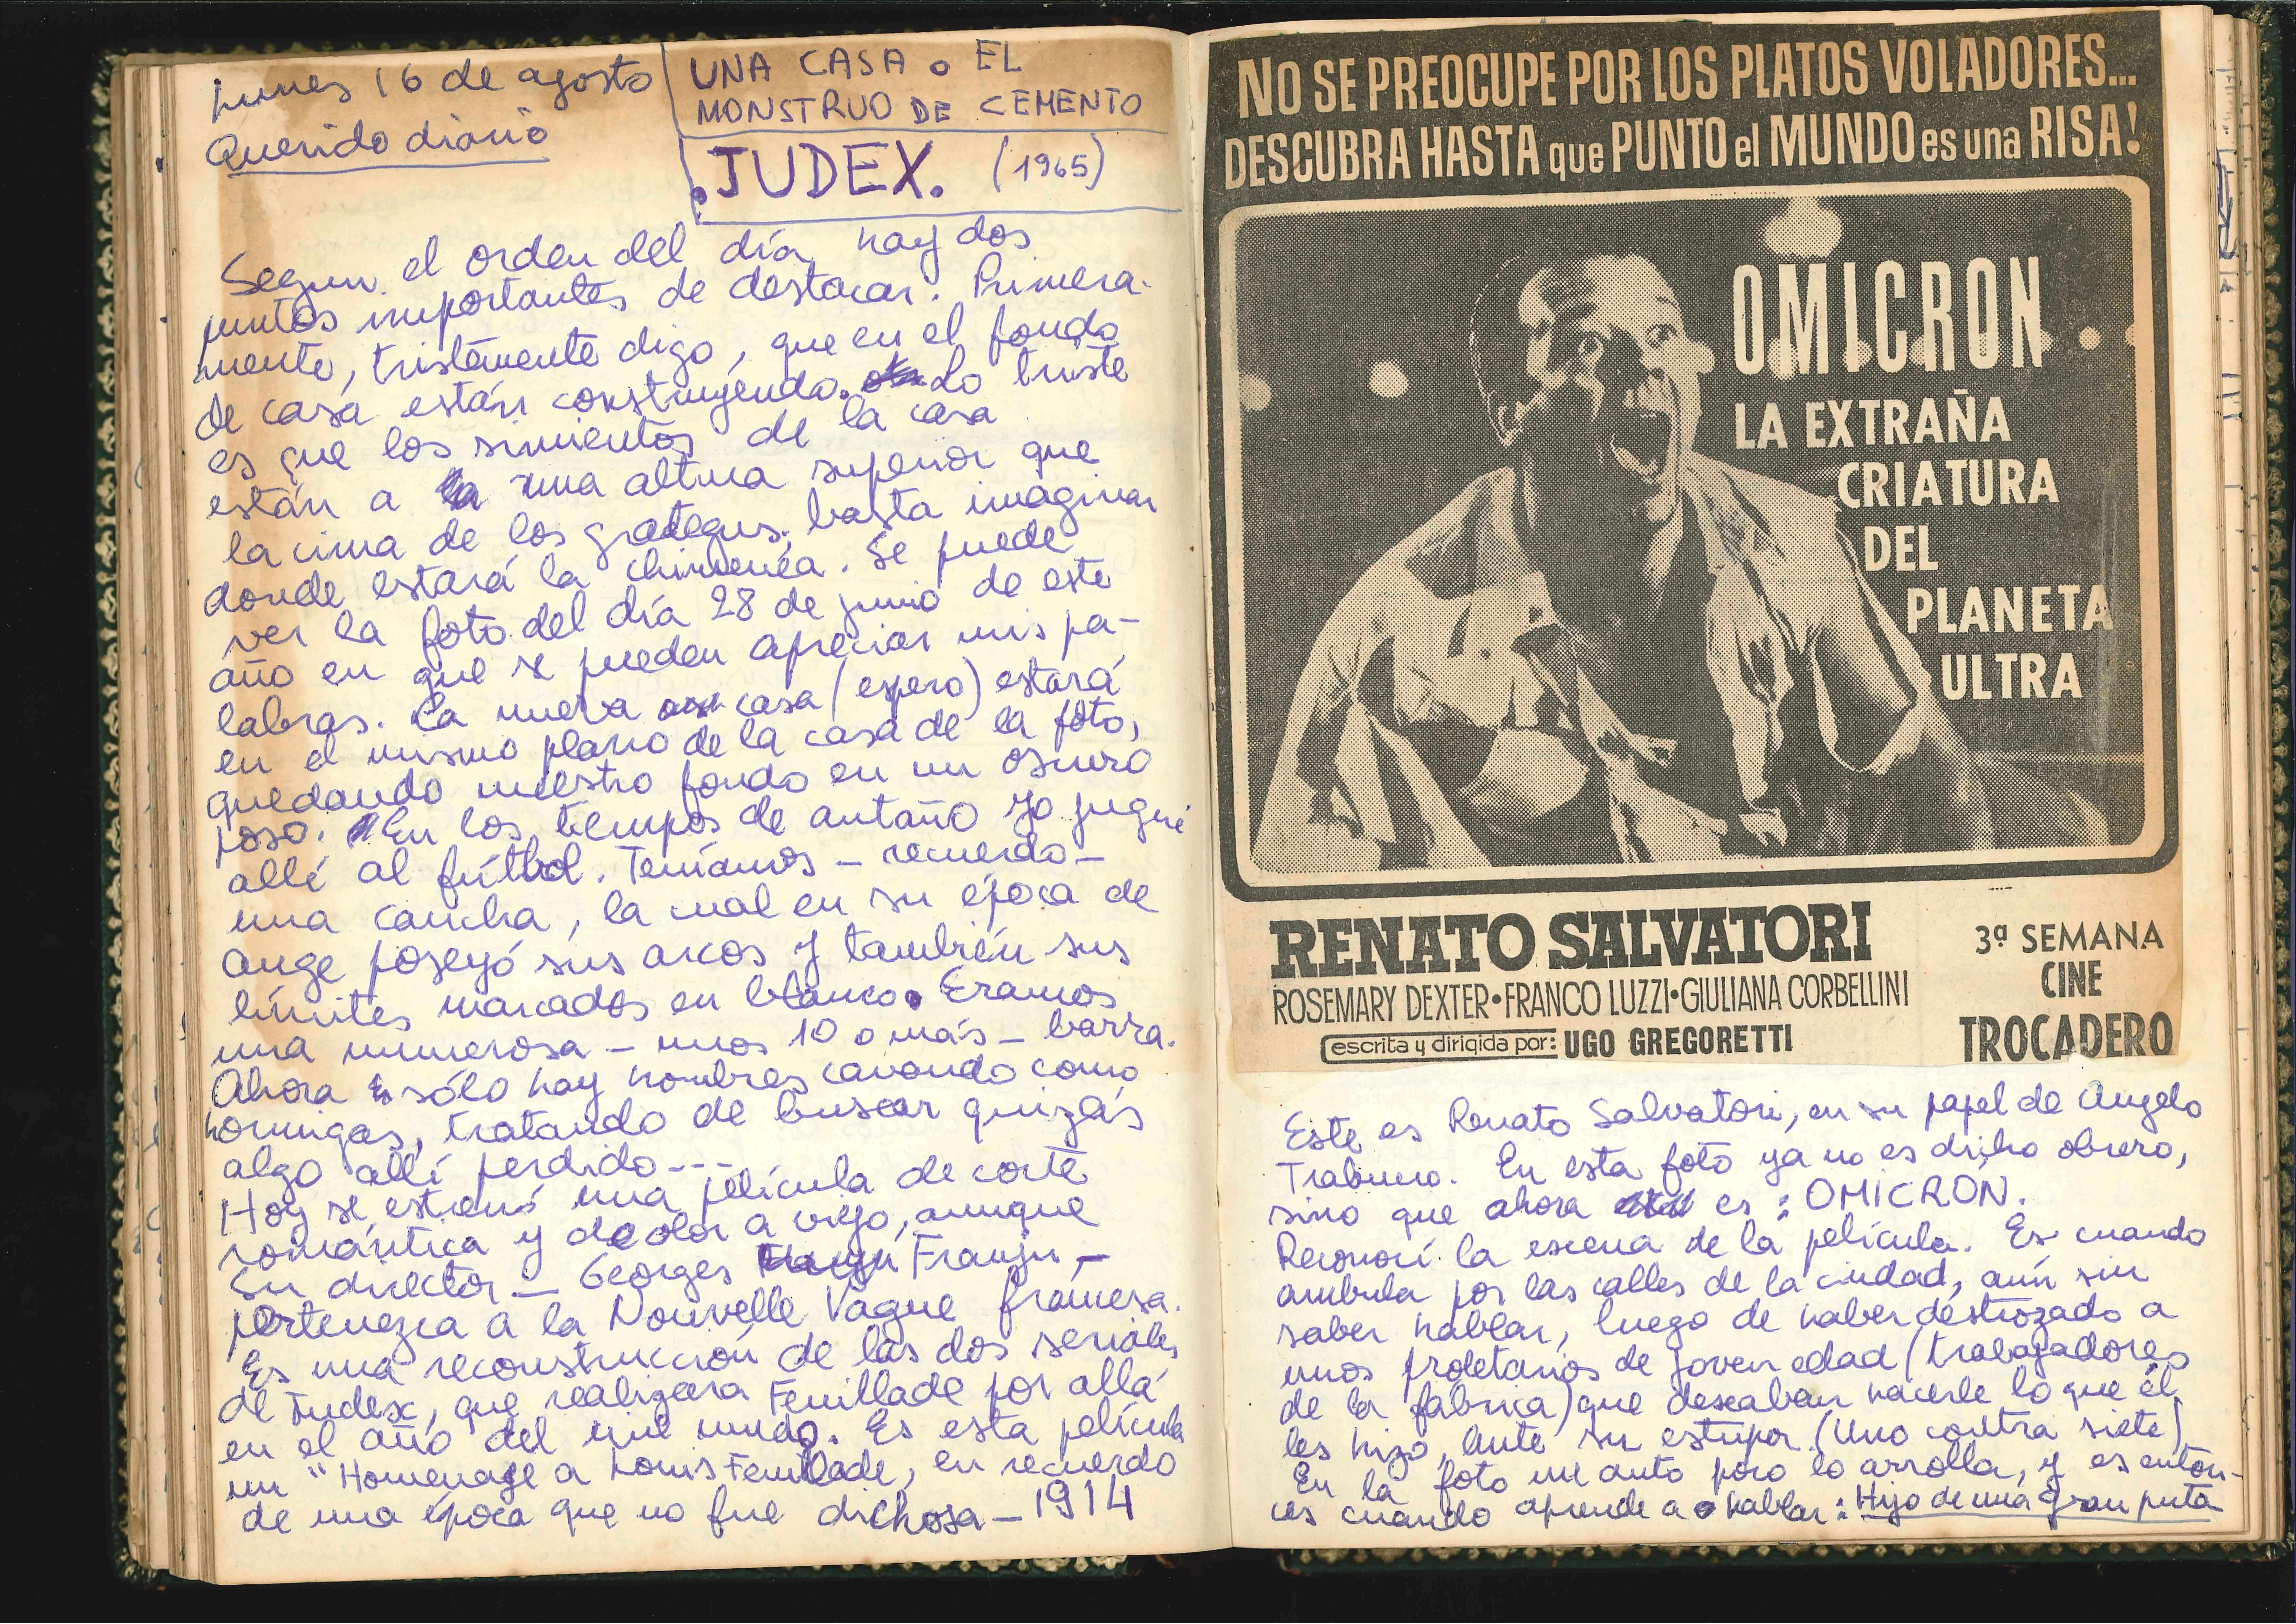 lunes 16 de agosto
Querido diario
UNA CASA o EL
MONSTRUO DE CEMENTO
.JUDEX. (1965)
Segun el orden del día, hay dos
puntos importantes de destacar. Primera-
mente, tristemente digo, que en el fondo
de casa están construyendo. Lo triste
es que los simientos de la casa
están a una altura superior que
la cima de los grategus; basta imaginar
donde estará la chimenéa. Se puede
ver la foto del día 28 de junio de este
año en que se pueden apreciar mis pa-
labras. La nueva casa (espero) estará
en el mismo plano de la casa de la foto,
quedando nuestro fondo en un oscuro
poso. En los tiempos de antaño yo jugué
allí al fútbol. Teníamos - recuerdo -
una cancha, la cual en su época de
auge poseyó sus arcos y también sus
límites marcados en blanco. Eramos
una numerosa - unos 10 o más - barra.
Ahora sólo hay hombres cavando como
hormigas, tratando de buscar quizás
algo allí perdido---
Hoy se estrenó una película de corte
romántica y de olor a viejo, aunque
su director - Georges Franju -
pertenezca a la Nouvelle Vague francesa.
Es una reconstrucción de las dos seriales
de Judex, que realizara Feuillade por allá
en el año del cine mudo. Es esta película
un "Homenage a Louis Feuillade, en recuerdo
de una época que no fue dichosa - 1914
NO SE PREOCUPE POR LOS PLATOS VOLADORES...
DESCUBRA HASTA que PUNTO el MUNDO es una RISA!
OMICRON
LA EXTRAÑA
CRIATURA
DEL
PLANETA
ULTRA
RENATO SALVATORI
ROSEMARY DEXTER•FRANCO LUZZI•GIULIANA CORBELLINI
escrita y dirigida por: UGO GREGORETTI
3ª SEMANA
CINE
TROCADERO
Este es Renato Salvatori, en su papel de Angelo
Trabucco. En esta foto ya no es dicho obrero,
sino que ahora es : OMICRON.
Reconocí la escena de la película. Es cuando
ambula por las calles de la ciudad, aún sin
saber hablar, luego de haber destrozado a
unos proletarios de joven edad (trabajadores
de la fábrica) que deseaban hacerle lo que él
les hizo, ante su estupor. (Uno contra siete)
En la foto un auto poco lo arrolla, y es enton-
ces cuando aprende a hablar : Hijo de una gran puta